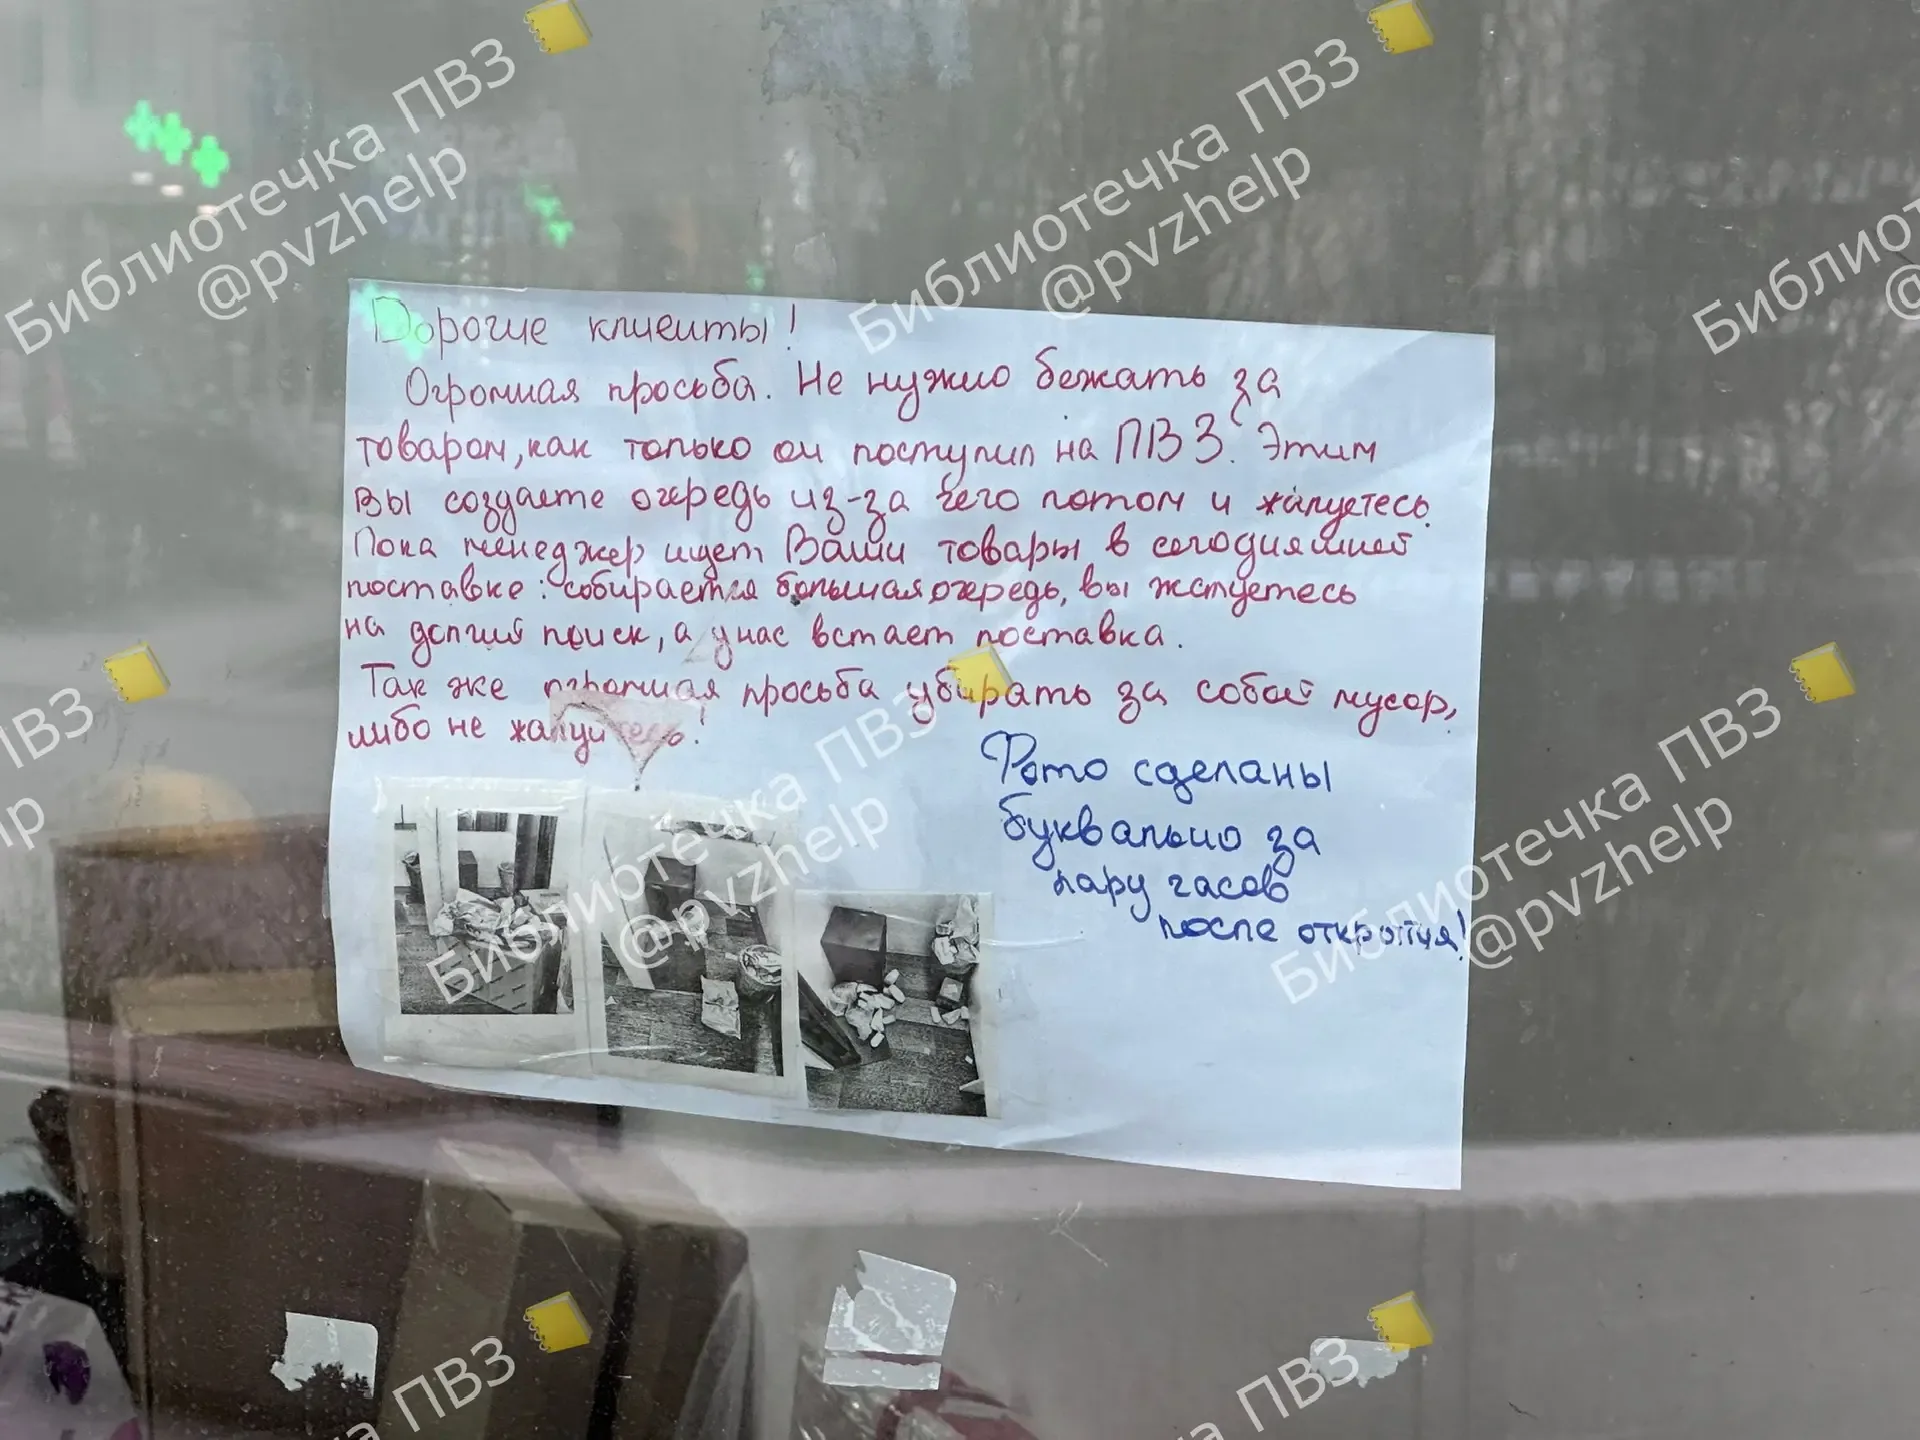 Дорогие клиенты!
Огромная просьба. Не нужно бежать за
товаром, как только он поступил на ПВЗ. Этим
вы создаете очередь из-за чего потом и жалуетесь.
Пока менеджер ищет Ваши товары в сегодняшней
поставке: собирается большая очередь, вы жалуетесь
на долгий поиск, а у нас встает поставка.
Так же огромная просьба убирать за собой мусор,
либо не жалуйтесь!
Фото сделаны
буквально за
пару часов
после открытия!
Библиотечка ПВЗ
@pvzhelp
Библиотечка ПВЗ
@pvzhelp
Библиотечка ПВЗ
@pvzhelp
Библиотечка ПВЗ
@pvzhelp